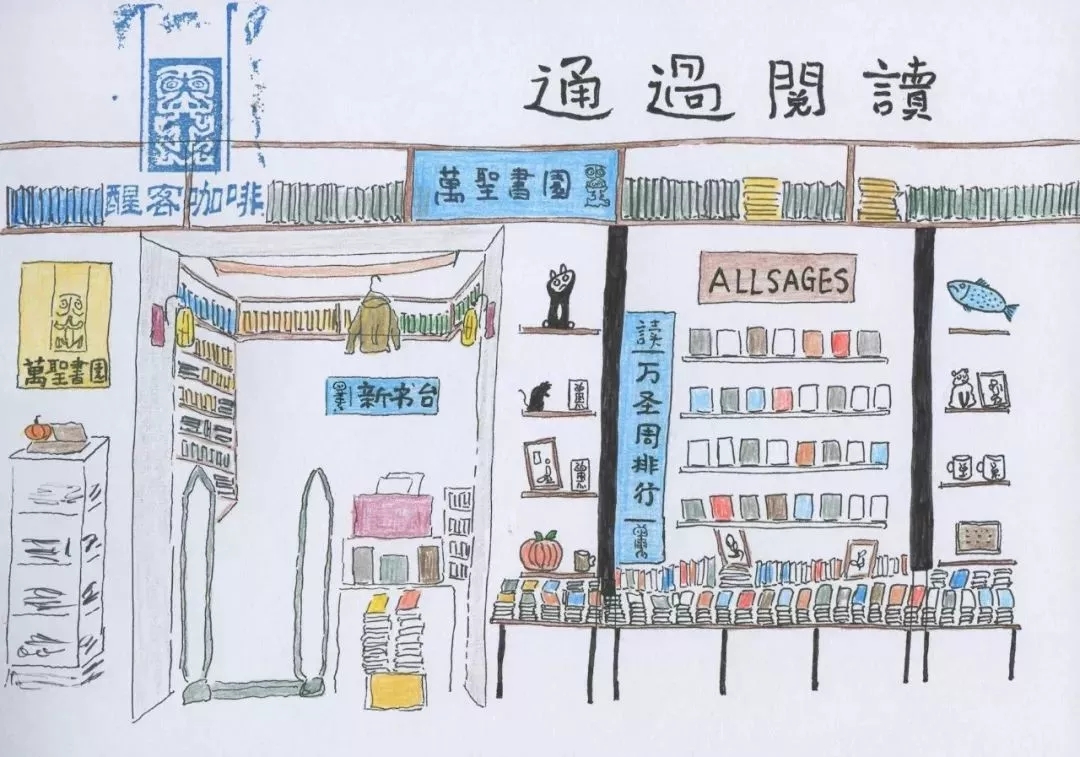 通過閱讀
醒客咖啡
萬聖書園
ALLSAGES
萬聖書園
新书台
读
万圣周排行